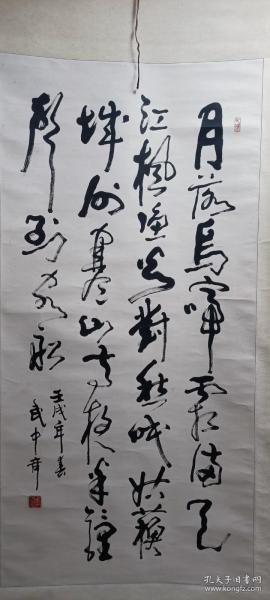 月落烏啼霜滿天
江楓漁火對愁眠姑蘇
城外寒山寺夜半鐘
聲到客船
壬戌年春
武中奇
孔夫子旧书网